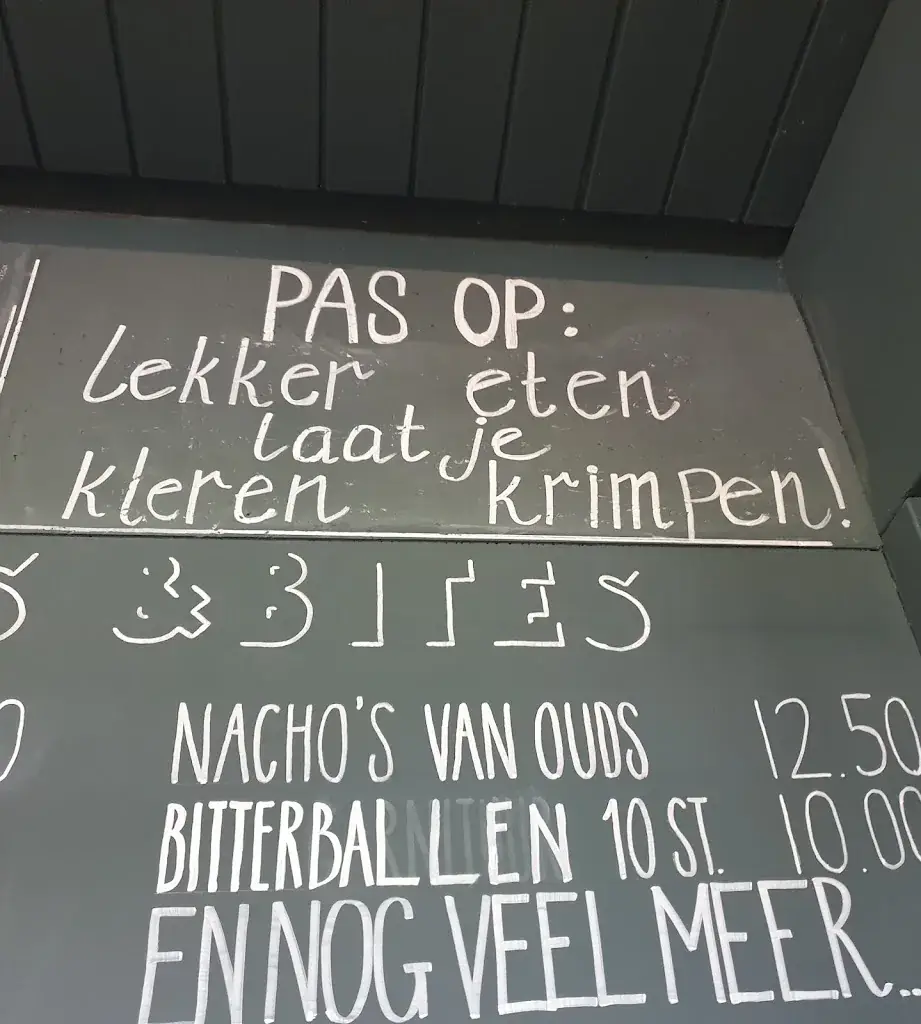 PAS OP:
Lekker eten
laat je
kleren krimpen!
& BITES
NACHO'S VAN OUDS 12.50
BITTERBALLEN 10 ST. 10.00
EN NOG VEEL MEER...